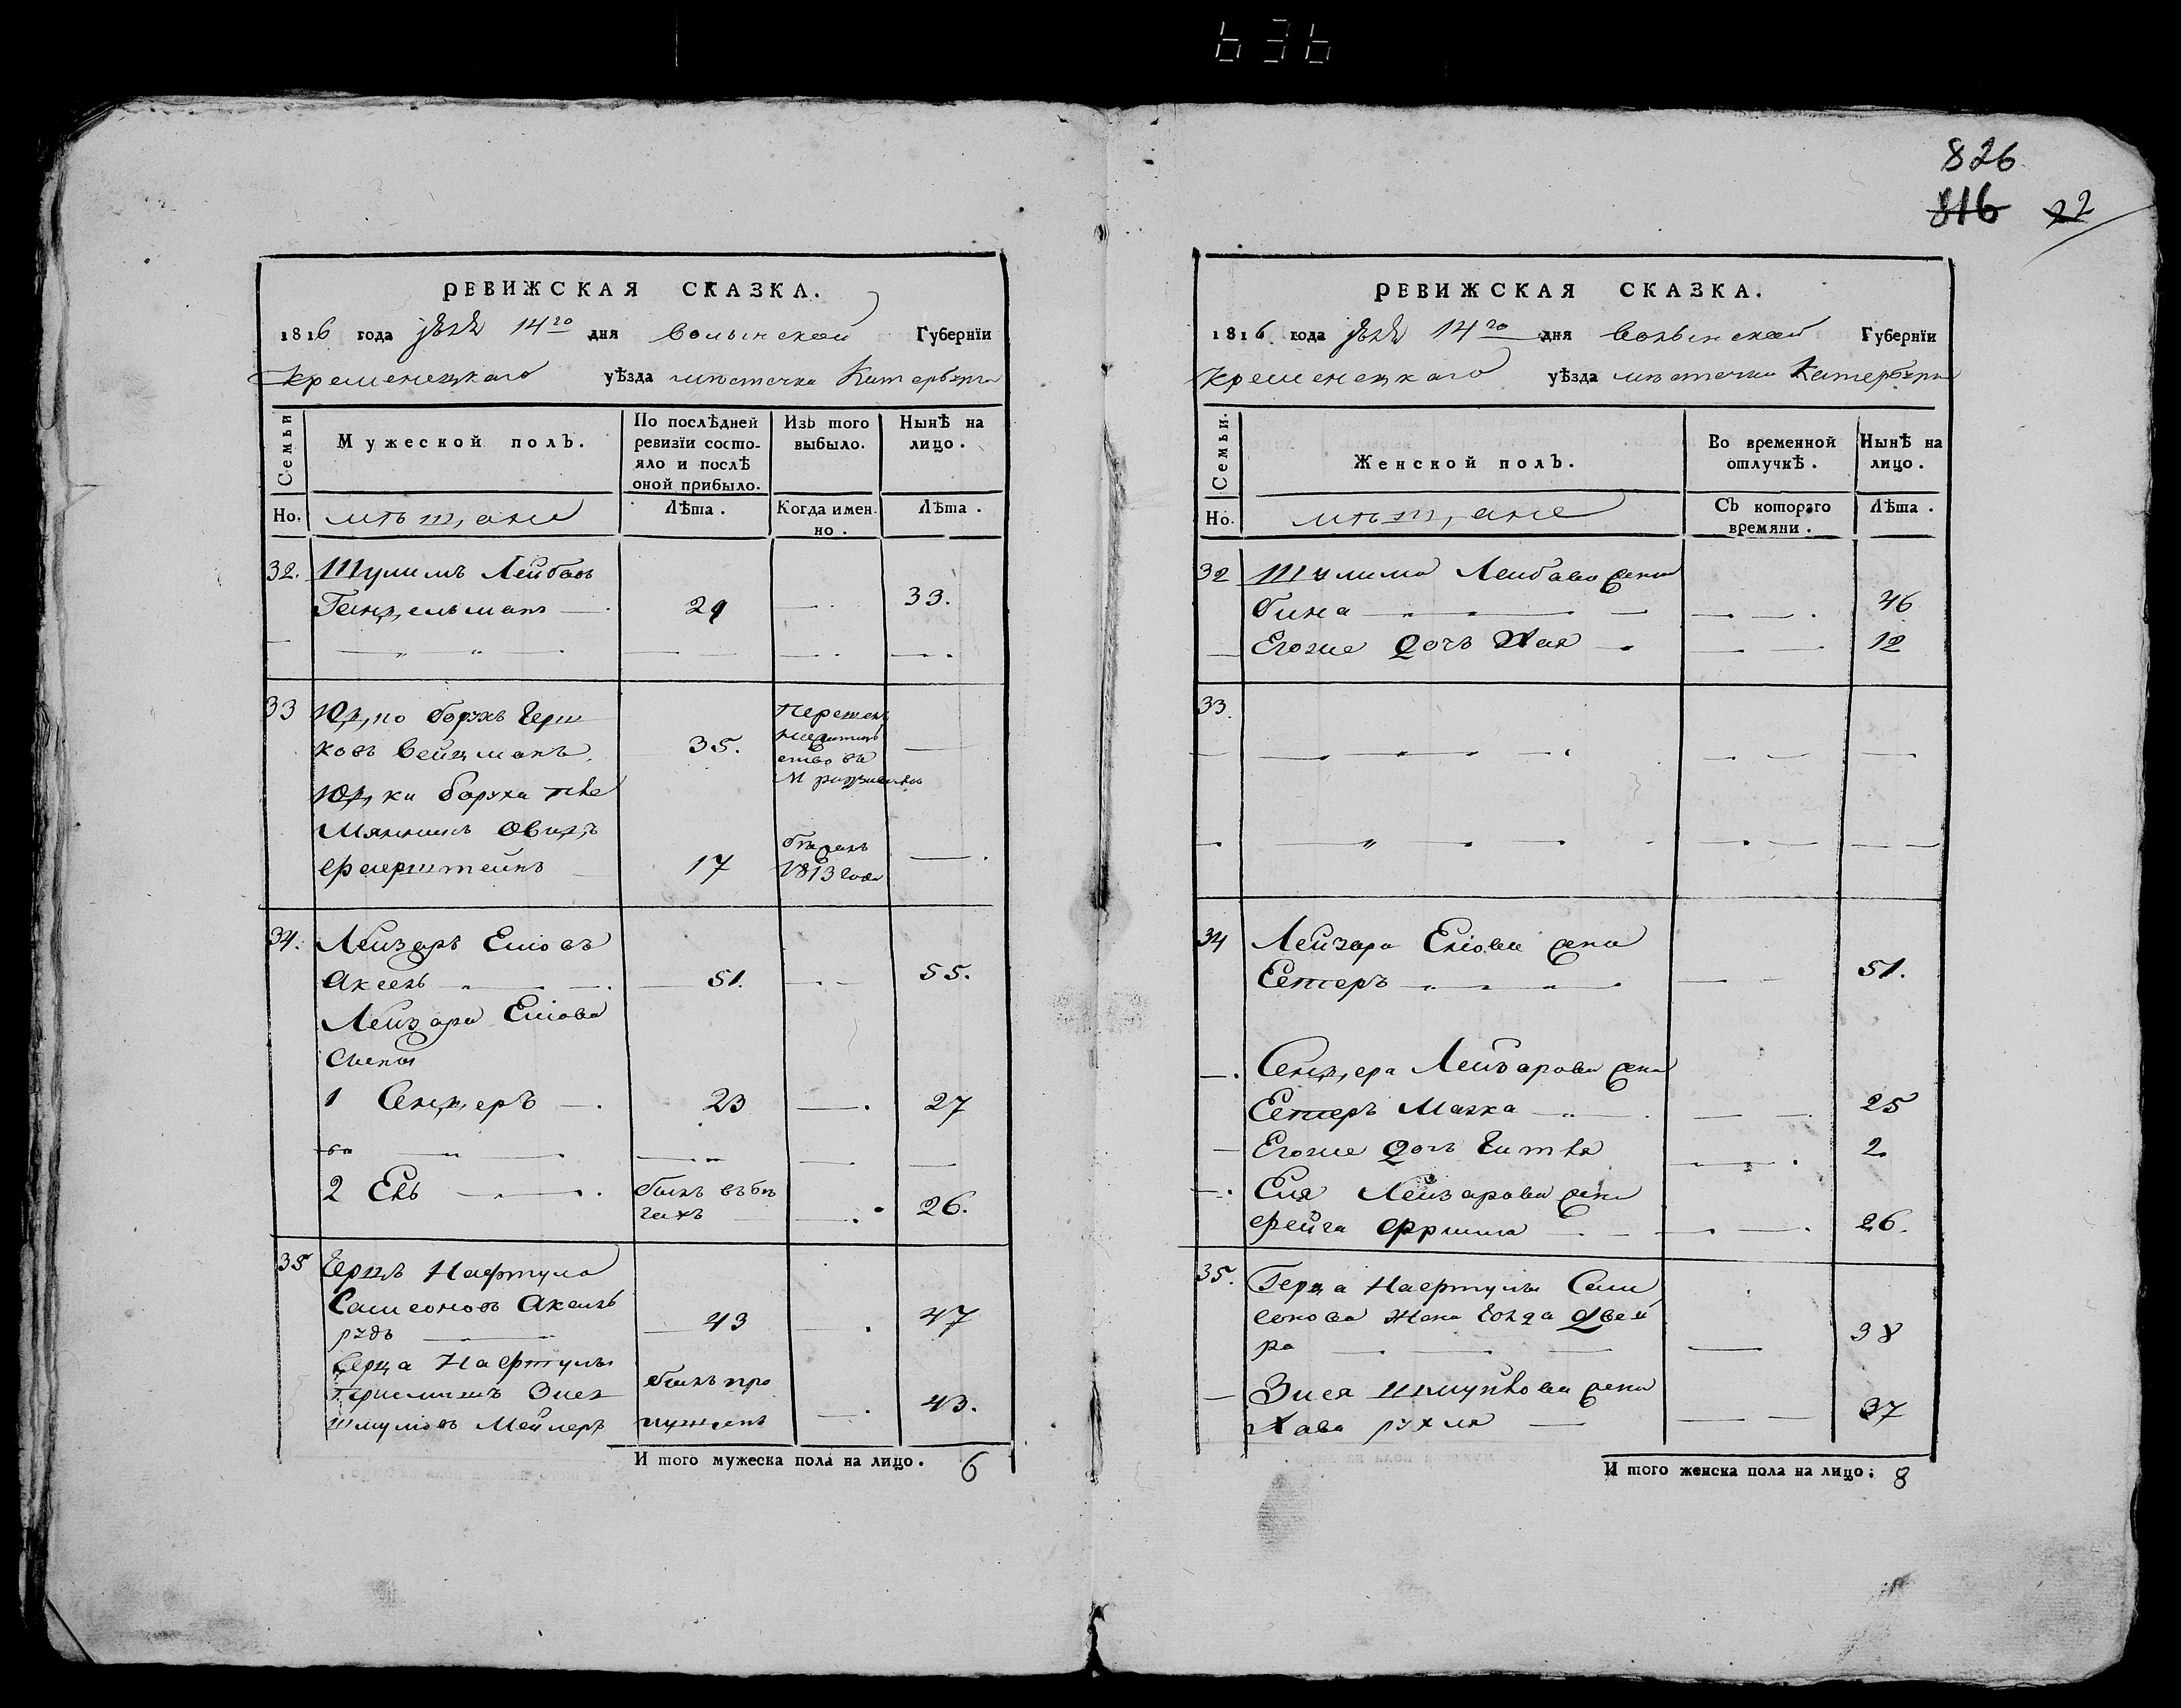 636
826
816 22
РЕВИЖСКАЯ СКАЗКА.
1816 года 14го дня Волынской Губернїи
Кременецкаго уѣзда местечка Катербурга
Семьи
Мужеской полъ.
По послѣдней ревизїи состояло и послѣ оной прибыло.
Изъ того выбыло.
Нынѣ на лицо.
Но. мѣщане
Лѣта.
Когда именно.
Лѣта.
32. Шулимъ Лейбовъ
Гендельманъ 29 33.
33 Юдко борухъ Герш
ковъ Вейцманъ. 35.
Юдки боруха
Овидъ
Фаерштейнъ 17 1813 года
34. Лейзоръ Еліовъ
Аксель 51. 55.
Лейзора Еліова
Сыны
1 Сендеръ 23 27
2 Ель былъ въ бѣ
гахъ 26.
35 Герцъ Нафтула
Самсоновъ Аксель
рудъ 43 47
Герца Нафтулы
Зися былъ про
Шмуловъ Мейлеръ пущенъ 43.
И того мужеска пола на лицо. 6
РЕВИЖСКАЯ СКАЗКА.
1816 года 14го дня Волынской Губернїи
Кременецкаго уѣзда местечка Катербурга
Семьи.
Женской полъ.
Во временной отлучкѣ.
Нынѣ на лицо.
Но. мѣщане
Съ котораго времяни.
Лѣта.
32 Шулима Лейбова жена
бина 46
Егоже дочь Хая 12
33.
34 Лейзора Еліова жена
Естеръ 51.
Сендера Лейзарова жена
Естеръ Малка 25
Егоже дочь Гитля 2
Еля Лейзарова жена
Фейга Фрима 26.
35. Герца Нафтулы Сам
сонова жена Голда Двей
ра 38
Зися Шмулкова жена
Хава рухля 37
И того женска пола на лицо: 8